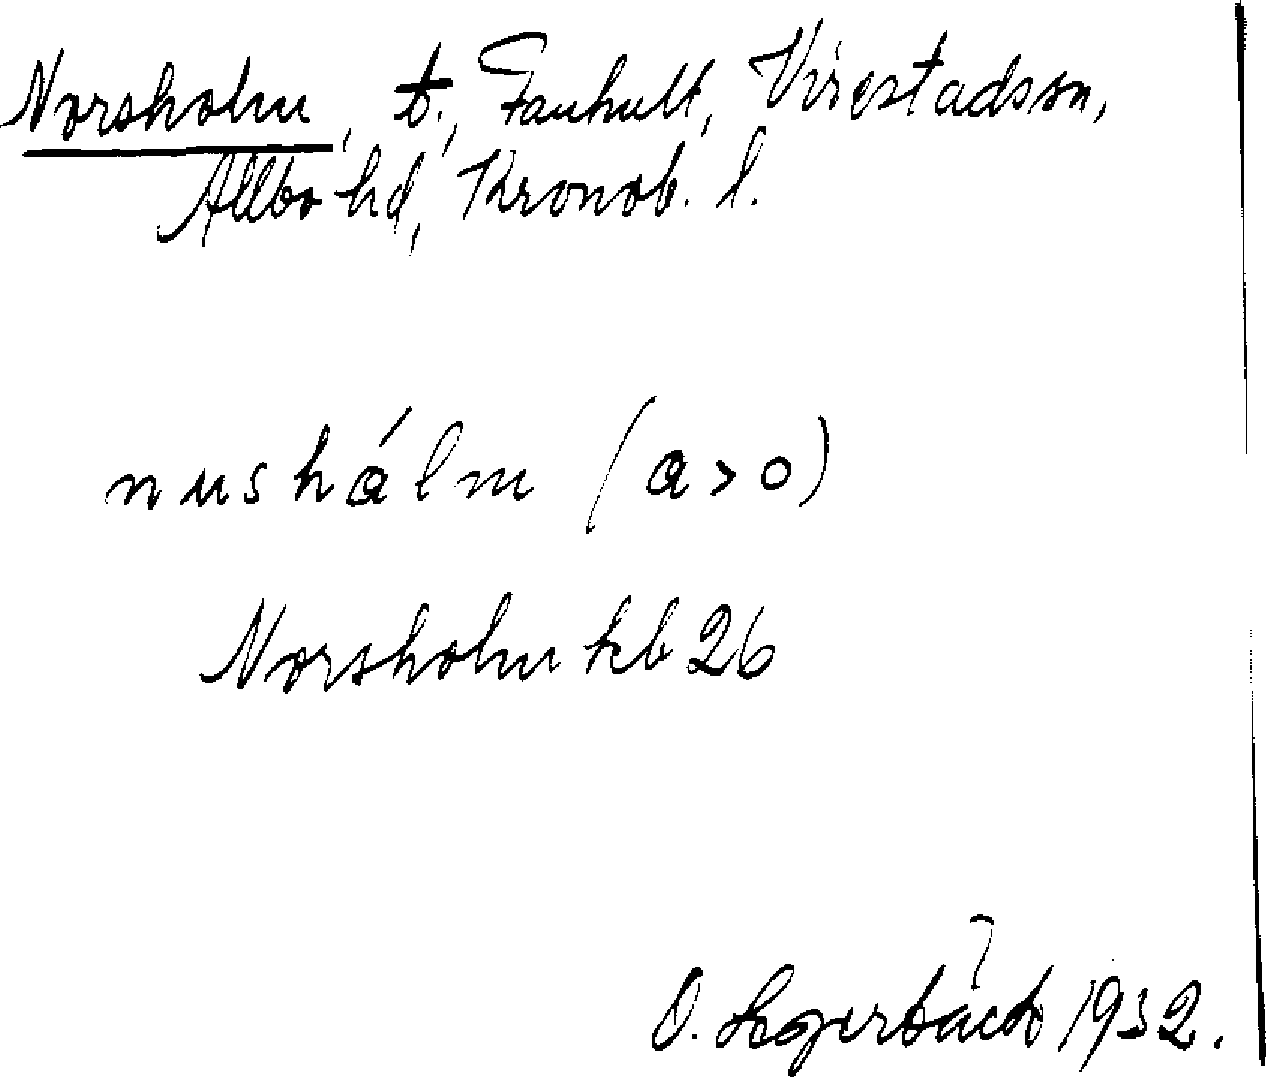 Norsholm, t., Fanhult, Virestadssn,
Allbo hd, Kronob. l.
nushálm (a>o)
Norsholm kb 26
O. Segerbäck 1932.